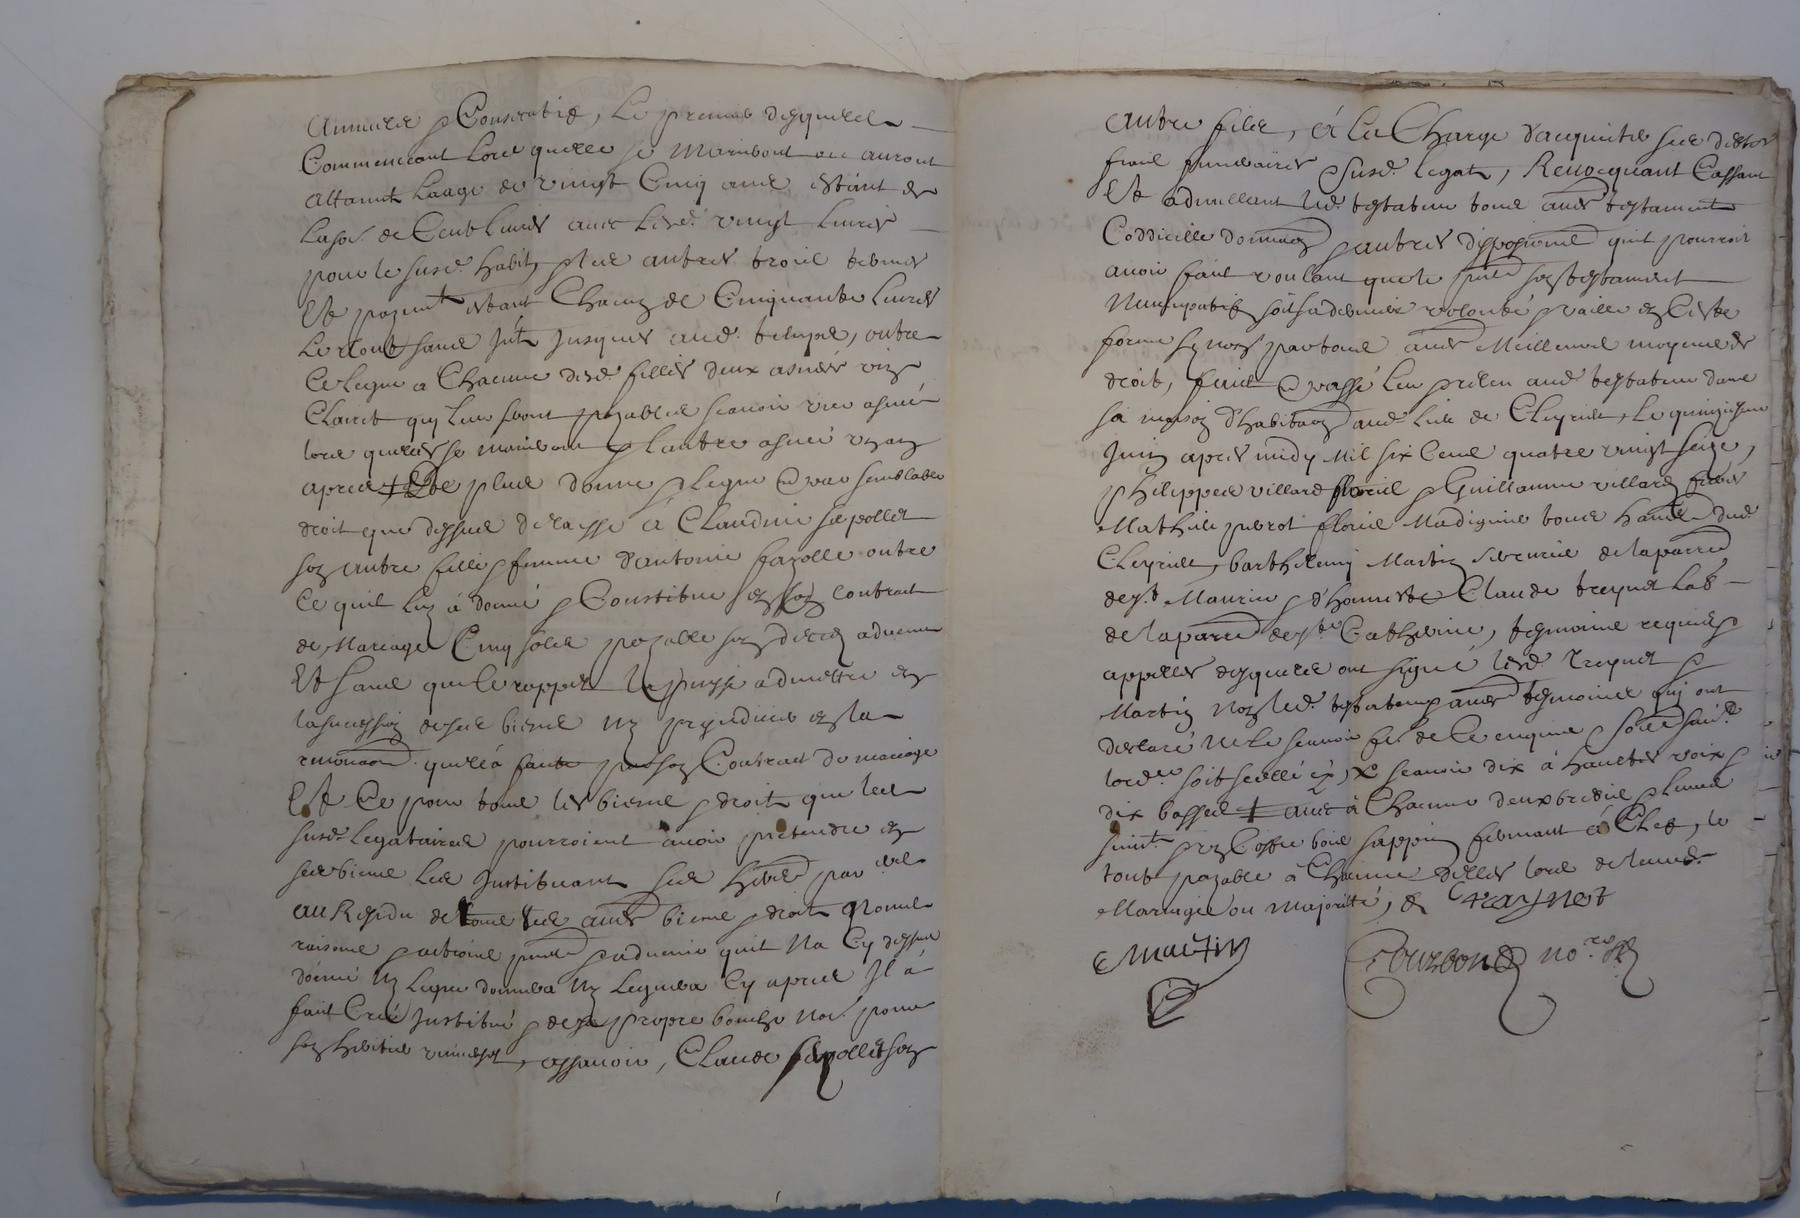 Annuels & Consecutifz, Le premier desquels
Commencant Lors quelles se mariront ou auront
Attaint Laage de vingt Cinq ans estant de
La so.e de Cent Livres avec Lesd. vingt Livres
pour le susd. habit, & les autres trois termes
Et payemt. estant Chacung de Cinquante Livres
Le tout sans Jnt. Jusques aud. temps, outre
Ce Legue a Chacune desd. filles deux asnées vin
Clairet quy Leur seront payables scavoir une asnée
lors quelles se mariront & Lautre asnée un an
apres Et de plus donne & Legue & par semblable
droit que dessus delaisse a Claudine sepollet
son autre fille & femme d'antoine fayolle outre
Ce quil Luy à donné & Constitué en son Contrait
de Mariage Cinq sols payable son deces advenu
Et sans que le rappel La puisse admettre en
la succession de ses biens ny prejudicier en la
renonaon quelle a faite par son Contrait de mariage
Et Ce pour tous les biens & droits que les
susd. Legataires pourroient avoir pretendre en
ses biens Les Jnstituant ses hers par.ers
au Residu de tous ses aues biens & droits Noms
raisons & actions pnts & advenir quil Na Cy dessus
donné Ny Legué donnera Ny Leguera Cy apres Jl à
fait Créé Jnstitué & de sa propre bouche No.é pour
son heritier universel, assavoir, Claude sepollet son
autre fils, à La Charge d'acquitter ses dettes
frais funeraires & susd. legats, Revocquant Cassant
Et adnullant led. testateur tous aues testaments
Coddicille donnaon & autres dispositions quil pourroit
avoir fait voulant que le pnt son testament
Nuncupatif soit sa derniere volonté & vaille en Ceste
forme sy non par tous aues Meilleurs moyens de
droit, fait & passé Leu & releu aud. testateur dans
sa maison d'habitaon aud. Lieu de Cleyriet, Le quinziesme
Juin apres midy Mil six Cens quatre vingt seize,
philippes villard florie & Guillaume villard freres
Mathieu perrot florie Madignier tous hants dud.
Cleyriet, barthelemy Martin serrurier de la parre
de st. Maurice & d'honneste Claude treynet Lab.
de la parre de ste. Catherine, tesmoins requis &
appelles desquels ont signé lesd. Treynet &
Martin Non led. testateur & aues tesmoins quy ont
declaré Ne le scavoir fe. de Ce enquis & sommé
soit scellé scavoir dix à hautes voix &
dix basses à Chacune deux brebis & leurs
suivt. & un Coffre bois sappin fermant à Clef, le
tout payable à Chacune d'elles lors de leursd.
Mariage ou Majorité, & Traynet
Martin
Courbon no.re R